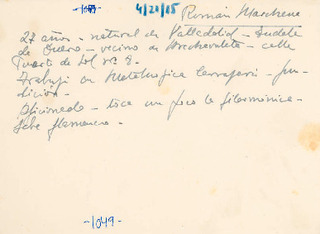 -1049-
4/20/15 Román Marchena
27 años - natural de Valladolid -
de Duero - vecino de - calle
Puerto de Sol nº 8.
Trabaja en Metalúrgica - fun-
dición -
Aficionado - toca un poco la filarmónica -
Sabe flamenco -
-1049-